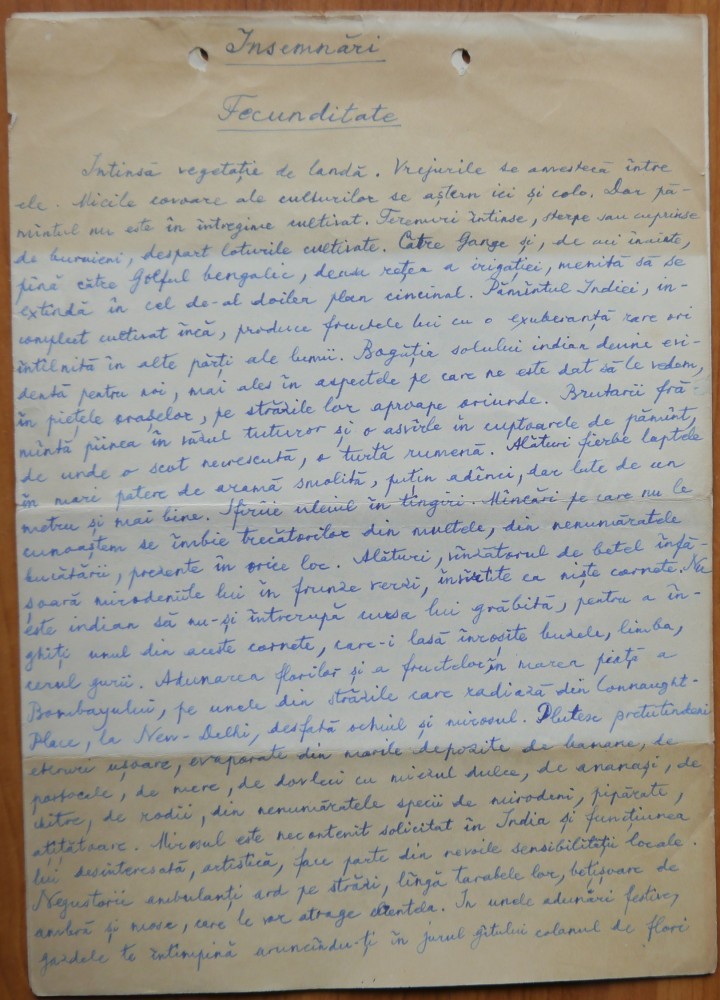 Însemnări
Fecunditate
Intinsă vegetație de landă. Vrejurile se amestecă între
ele. Micile covoare ale culturilor se aștern ici și colo. Dar pă-
mîntul nu este în întregime cultivat. Terenuri întinse, sterpe sau cuprinse
de buruieni, despart loturile cultivate. Către Gange și, de aci înainte,
pînă către Golful bengalic, deasa rețea a irigației, menită să se
extindă în cel de-al doilea plan cincinal. Pămîntul Indiei, in-
complect cultivat încă, produce fructele lui cu o exuberanță rare ori
întîlnită în alte părți ale lumii. Bogăția solului indian devine evi-
dentă pentru noi, mai ales în aspectele pe care ne este dat să le vedem,
în piețele orașelor, pe străzile lor aproape oriunde. Brutarii fră-
mîntă pîinea în văzul tuturor și o asvîrle în cuptoarele de pămînt,
de unde o scot necrescută, o turtă rumenă. Alături fierbe laptele
în mari patere de aramă smolită, puțin adînci, dar late de un
metru și mai bine. Sfîrîie uleiul în tingiri. Mîncări pe care nu le
cunoaștem se îmbie trecătorilor din multele, din nenumăratele
bucătării, prezente în orice loc. Alături, vînzătorul de betel înfă-
șoară mirodeniile lui în frunze verzi, învîrtite ca niște cornete. Nu
este indian să nu-și întrerupă cursa lui grăbită, pentru a în-
ghiți unul din aceste cornete, care-i lasă înroșite buzele, limba,
cerul gurii. Adunarea florilor și a fructelor, în marea piață a
Bombayului, pe unele din străzile care radiază din Connaught-
Place, la New-Delhi, desfată ochiul și mirosul. Plutesc pretutindeni
eteruri ușoare, evaporate din marile depozite de banane, de
portocele, de mere, de dovleci cu miezul dulce, de ananași, de
chitre, de rodii, din nenumăratele specii de mirodenii, pipărate,
ațîțătoare. Mirosul este necontenit solicitat în India și funcțiunea
lui desinteresată, artistică, face parte din nevoile sensibilității locale.
Negustorii ambulanți ard pe străzi, lîngă tarabele lor, bețișoare de
ambră și mosc, care le vor atrage clientela. In unele adunări festive,
gazdele te întîmpină aruncîndu-ți în jurul gîtului colanul de flori